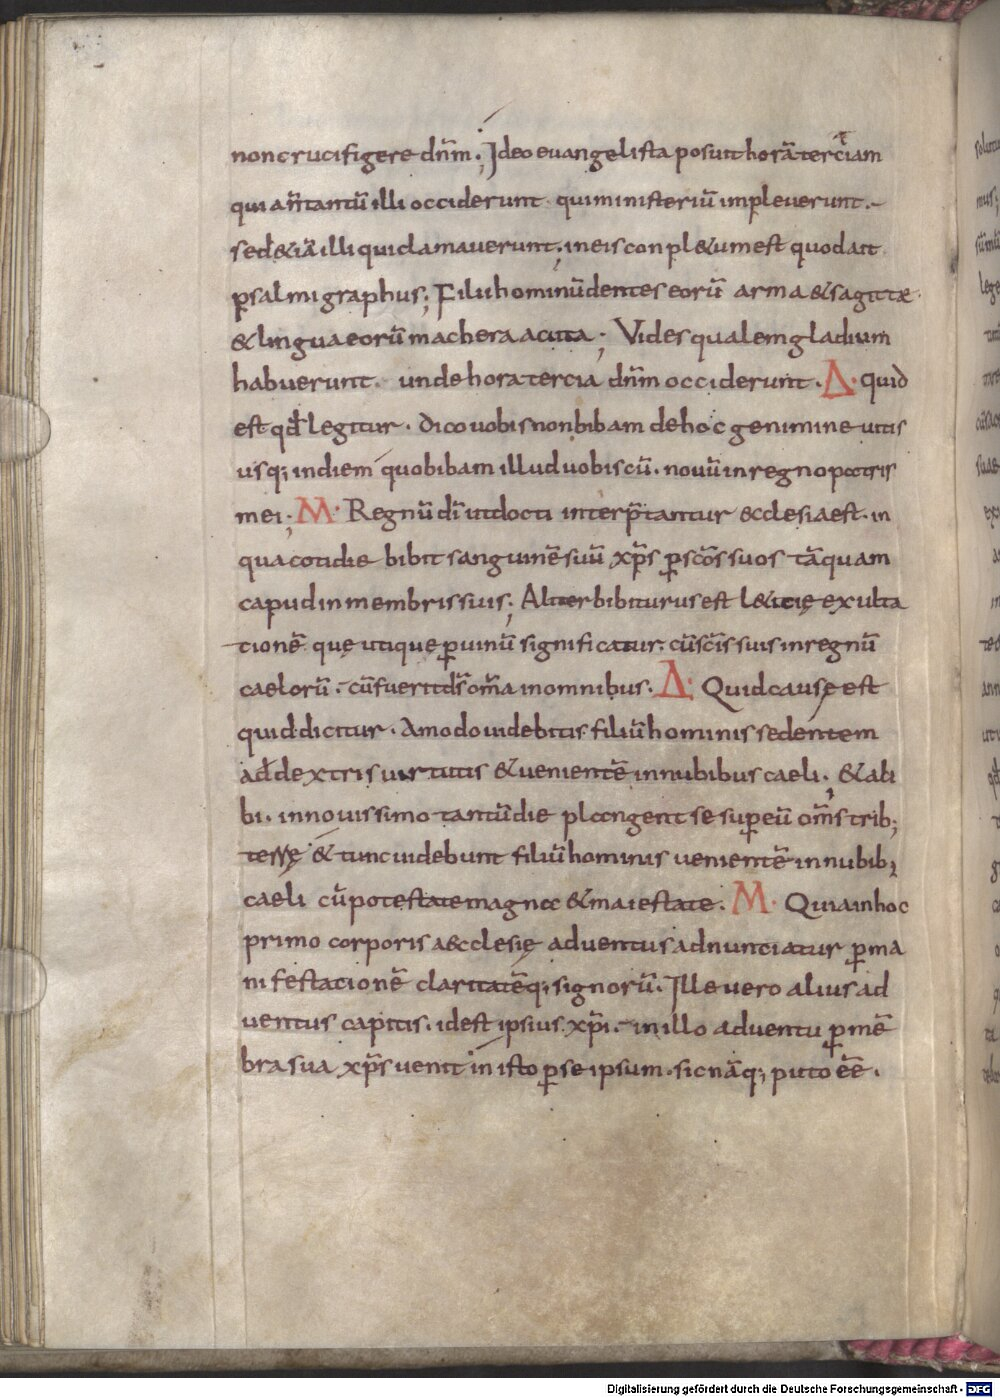 non crucifigere dnm̄. Ideo euangelista posuit horā terciam
qui añ tantū illi occiderunt qui ministeriū impleuerunt.
sed &iā illi qui clamauerunt, in eis conpl&um est quod ait
psalmigraphus; Filii hominū dentes eorū arma & sagittae
& lingua eorū machera acuta; Vides qualem gladium
habuerunt. unde hora tercia dnm̄ occiderunt. Δ. quid
est qđ legitur. dico uobis non bibam de hoc genimine uitis
usq; in diem quo bibam illud uobiscū. nouū in regno patris
mei; M. Regnū dī ut docti interp̄tantur ecclesia est. in
qua cotidie bibit sanguinē suū xp̄s p scōs suos tāquam
capud in membris suis; Aliter bibiturus est l&icię exulta
tionē. quę utique p uinū significatur. cū scīs suis in regnū
caelorū. cū fuerit dš om̄a in omnibus. Δ. Quid causę est
quid dicitur. Amodo uidebitis filiū hominis sedentem
ad dextris uirtutis & uenientē in nubibus caeli. & ali
bi. in nouissimo tantū die plangent se super eū om̄s trib;
terrę & tunc uidebunt filiū hominis uenientē in nubib;
caeli cū potestate magna & maiestate. M. Quia in hoc
primo corporis aecclesię aduentus adnunciatur p ma
nifestacionē claritatēq; signorū. Ille uero alius ad
uentus capitis. id est ipsius xp̄i. in illo aduentu p mē
bra sua xp̄s uenit in isto p se ipsum. sic nāq; puto eē.
Digitalisierung gefördert durch die Deutsche Forschungsgemeinschaft - DFG